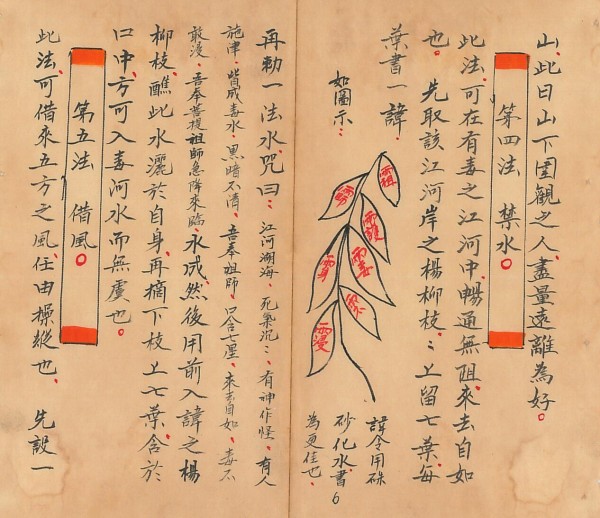 山、此日山下圍觀之人、盡量遠離為好。
第四法 禁水。
此法、可在有毒之江河中、暢通無阻、來去自如
也。先取該江河岸之楊柳枝、:上留七葉、每
葉書一諱、
如圖示:
諱令用硃
砂化水書
為更佳也、
6
再勅一法水、咒曰: 江河湖海、死氣沉:、有神作怪、有人
施津、皆成毒水、黑暗不清、吾奉祖師、口含七星、來去自如、毒不
敢浸、吾奉菩提祖師急降來臨、水成、然後用前入諱之楊
柳枝、醮此水灑於自身、再摘下枝上七葉、含於
口中、方可入毒河水而無虞也。
第五法 借風。
此法、可借來五方之風、任由操縱也、先設一